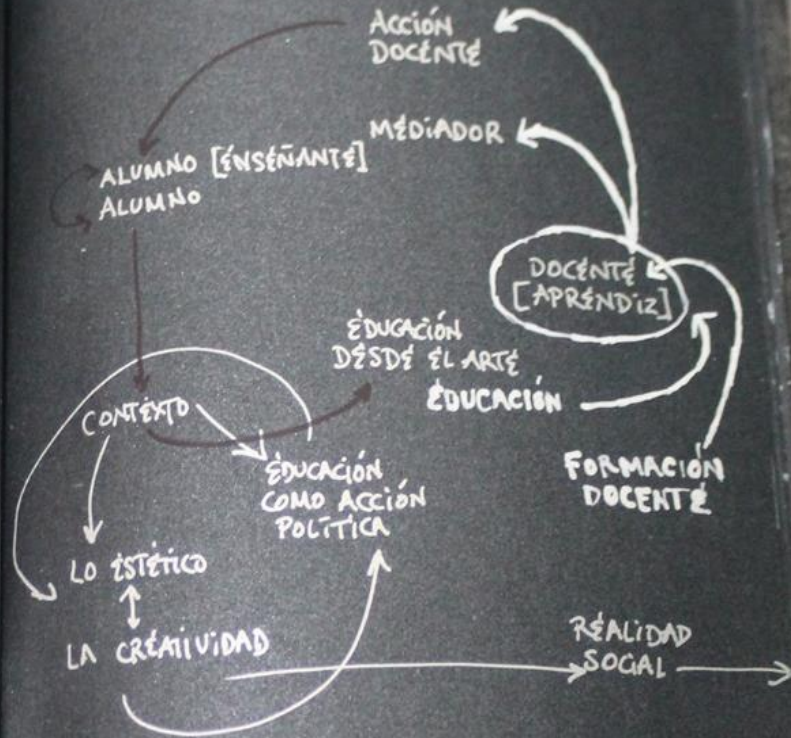 ACCIÓN
DOCENTE
MEDIADOR
ALUMNO [ENSEÑANTE]
ALUMNO
DOCENTE
[APRENDIZ]
EDUCACIÓN
DESDE EL ARTE
EDUCACIÓN
CONTEXTO
EDUCACIÓN
COMO ACCIÓN
POLÍTICA
FORMACIÓN
DOCENTE
LO ESTÉTICO
LA CREATIVIDAD
REALIDAD
SOCIAL